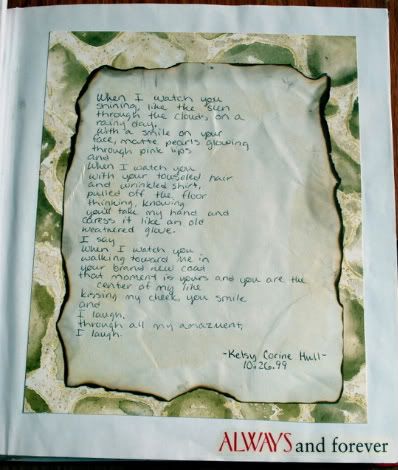 When I watch you
shining, like the sun
through the clouds on a
rainy day.
with a smile on your
face, matte pearls glowing
through pink lips
and
When I watch you
with your touseled hair
and wrinkled shirt,
pulled off the floor
thinking, knowing
you'll take my hand and
caress it like an old
weathered glove.
I say
When I watch you
walking toward me in
your brand new coat
that moment is yours and you are the
center of my life
kissing my cheek, you smile
and
I laugh.
through all my amazment,
I laugh.
-Kelsy Corine Hull-
10.26.99
ALWAYS and forever